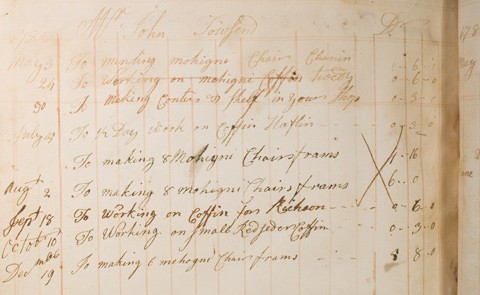 Mr John Townsend Dr
May 3 To menting mohigne Chair 0 - 6 - 0
24 To Working on mohigne Coffin 0 - 6 - 0
30 A making Conter & Shelf in your Shop 0 - 3 - 0
July To ½ Day work on Coffin 0 - 3 - 0
To making 8 Mohigni Chairs frams 16
Augt 2 To making 8 mohigni Chairs frams 6 - 0
Sept 18 To Working on Coffin for 0 - 6 - 0
Octob 10 To Working on Small Coffin 0 - 3 - 0
Decmbe 19 To making 6 mehogne Chair frams 8 - 0
178
May